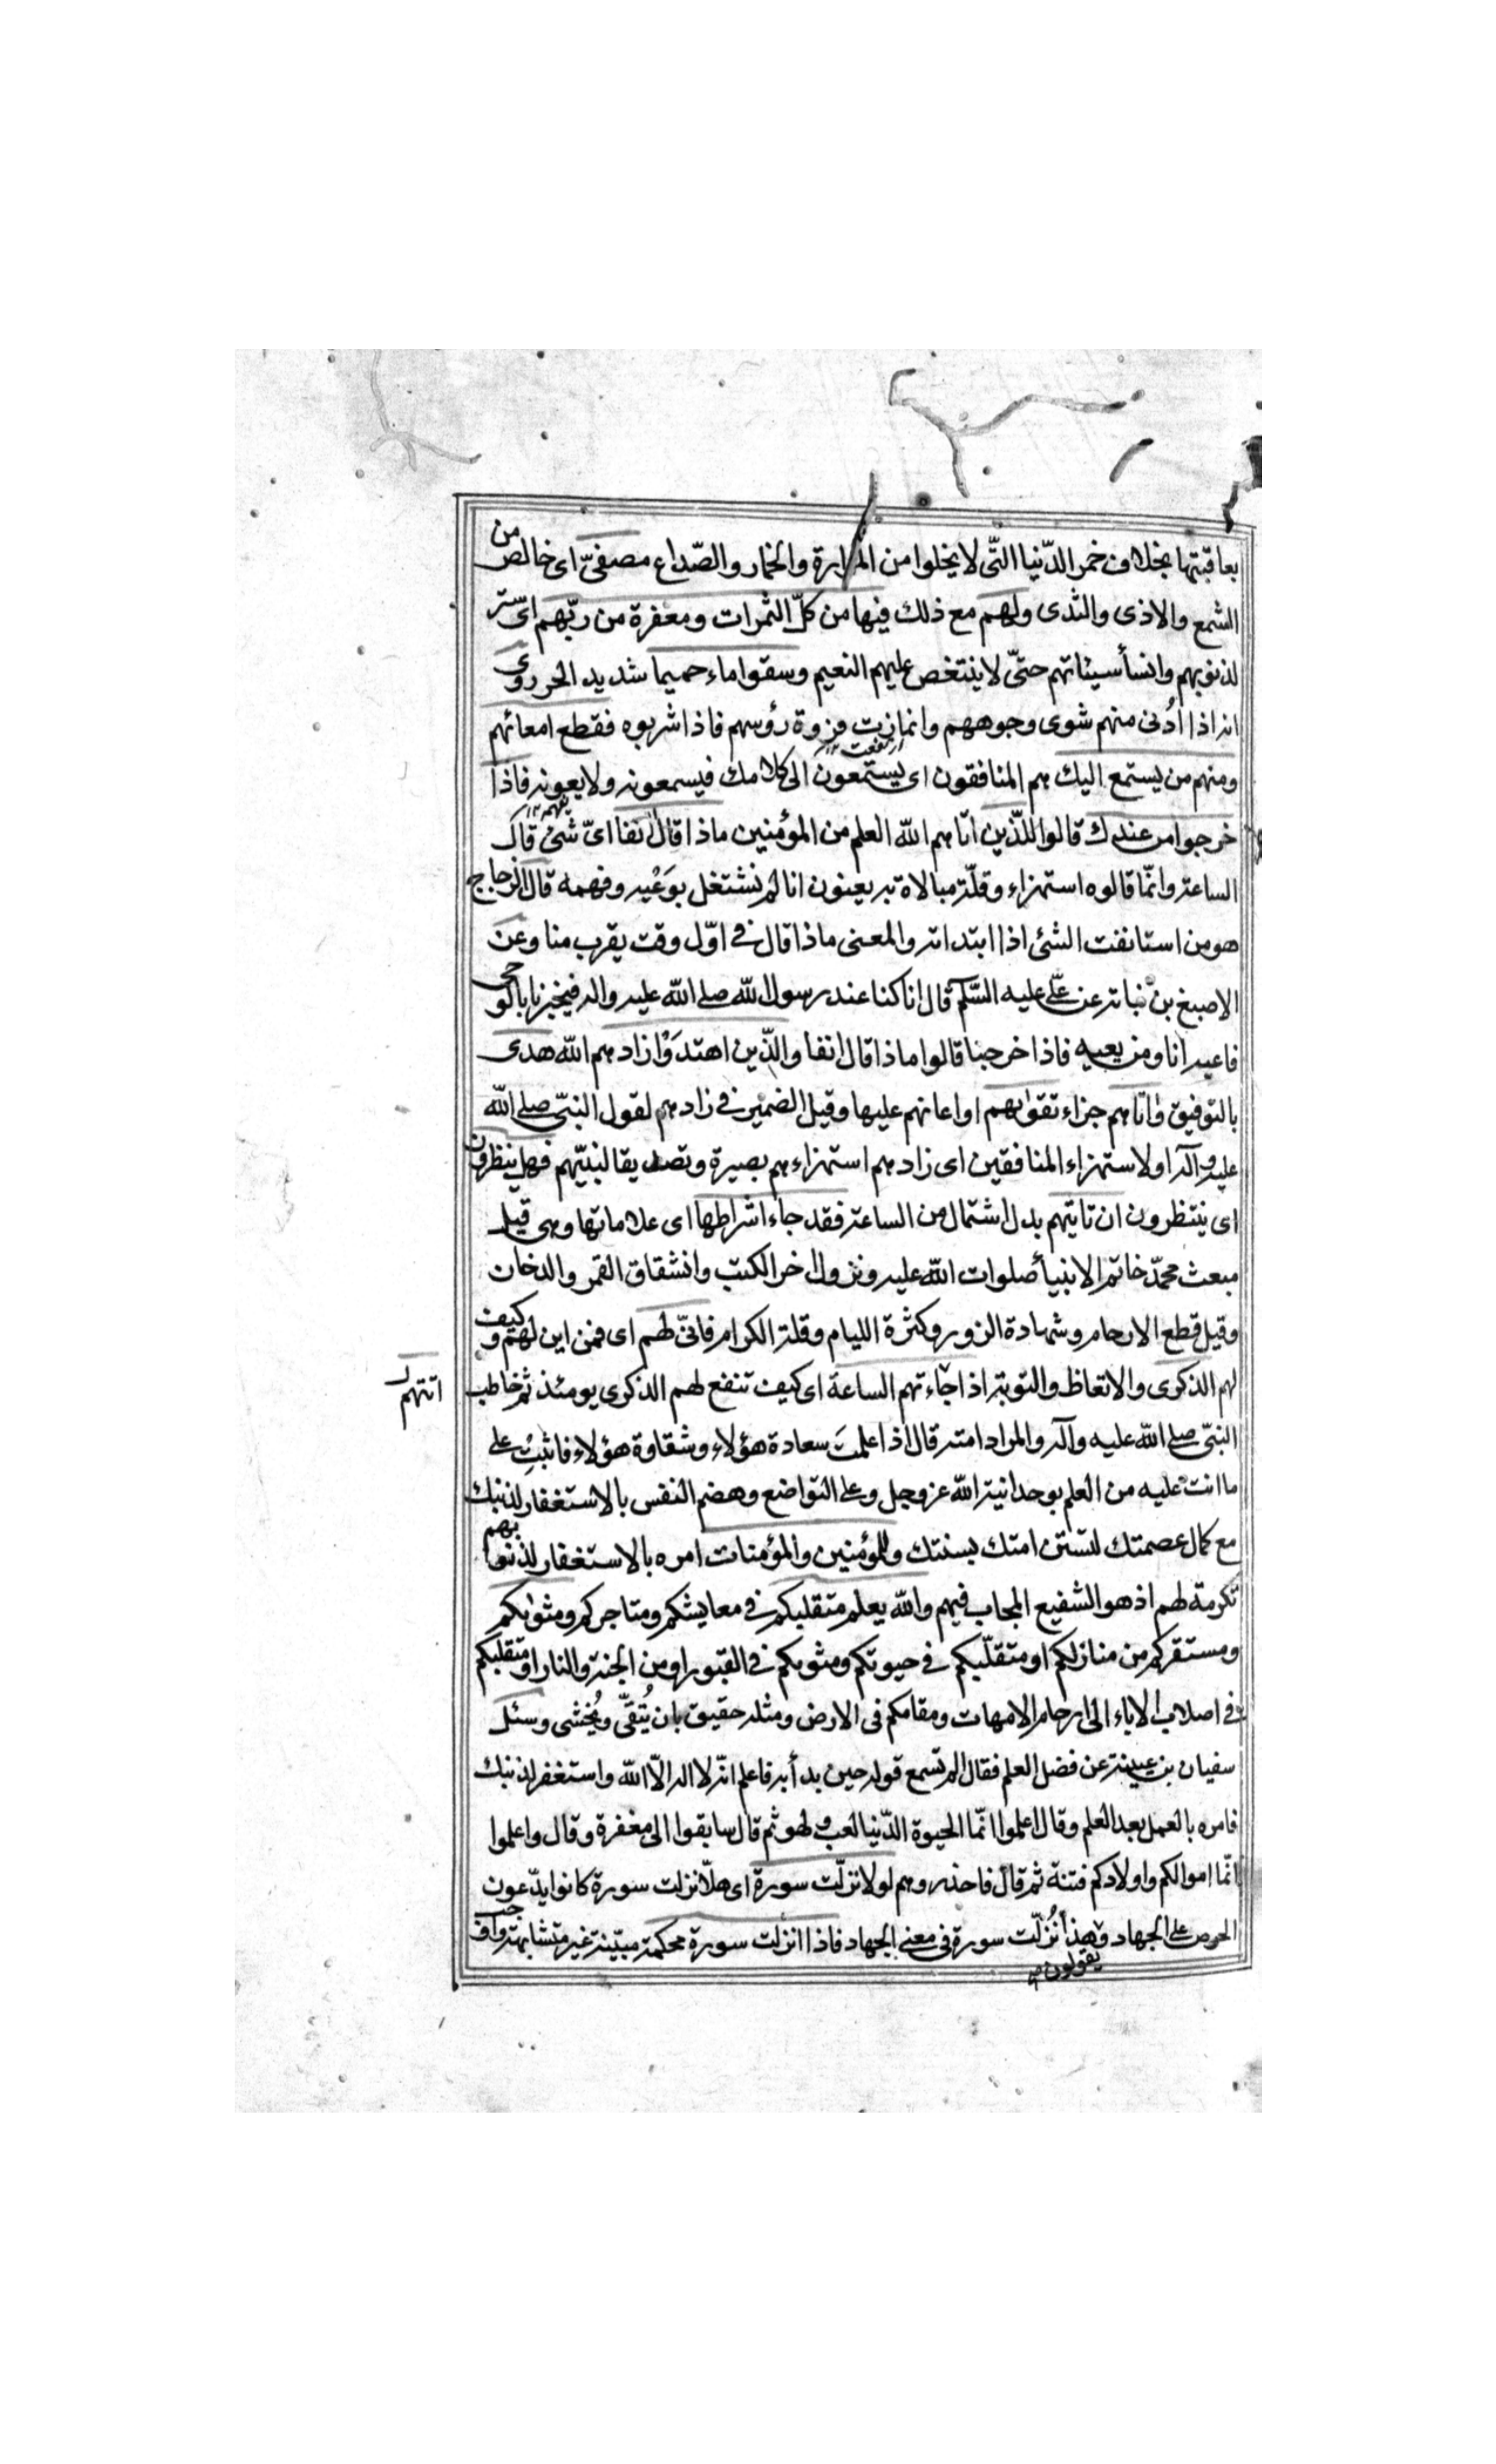 بعاقبتها بخلاف خمر الدّنيا التّى لا يخلوا من المرارة والخمار والصّداع مصفىّ اى خالص من
الشمع والاذى والثدى ولهم مع ذلك فيها من كلّ الثمرات ومغفرة من ربّهم اى ستر
لذنوبهم وانسأ سيئاتهم حتىّ لا ينتغص عليهم النعيم وسقوا ماء حميما شديد الحر روى
انه اذا ادُنى منهم شوى وجوههم وانمازت فروة رؤسهم فاذا شربوه فقطع امعائهم
ومنهم من يستمع اليك هم المنافقون اى يستمعون الى كلامك فيسمعونه ولا يعونه فاذا
خرجوا من عندك قالوا للذّين اتاهم الله العلم من المؤمنين ماذا قال انفا اىّ شئ قال
الساعة وانمّا قالوه استهزاء وقلّة مبالاة به يعنون انا لم نشتغل بوَعْيه وفهمه قال الزجاج
هو من استانفت الشئ اذا ابتداته والمعنى ماذا قال فى اوّل وقت يقرب منا وعن
الاصبغ بن نباته عن علّى عليه السّلم قال انا كنا عند رسول الله صلى الله عليه واله فيخبرنا بالوحى
فاعيه انا ومن يعيه فاذا خرجنا قالوا ماذا قال انفا والذّين اهتدَوْا زادهم الله هدى
بالتوفيق واتاهم جزاء تقوٰيهم او اعانهم عليها وقيل الضمير فى زادهم لقول النبىّ صلى الله
عليه وآله او لاستهزاء المنافقين اى زادهم استهزاءهم بصيرة وتصديقا لنبيّهم فهل ينظرون
اى ينتظرون ان تاتيهم بدل اشتمال من الساعة فقد جاء اشراطها اى علاماتها وهى قيل
مبعث محمّد خاتم الانبيأ صلوات الله عليه ونزول اخر الكتب وانشقاق القمر والدخان
وقيل قطع الارحام وشهادة الزور وكثرة الليام وقلة الكرام فانىّ لهم اى فمن اين لهم وكيف
لهم الذكرى والاتعاظ والتوبة اذا جاءتهم الساعة اى كيف تنفع لهم الذكرى يومئذ ثم خاطب
اتتهم
النبىّ صلى الله عليه وآله والمراد امته قال اذا علمتَ سعادة هؤلاء وشقاوة هؤلاء فاثبتْ على
ما انت عليه من العلم بوحدانية الله عز وجل وعلى التواضع وهضم النفس بالاستغفار لذنبك
مع كمال عصمتك لتستن امتك بسنتك وللمؤمنين والمؤمنات امره بالاستغفار لذنوبهم
تكرمة لهم اذ هو الشفيع المجاب فيهم والله يعلم متقلبكم فى معايشكم ومتاجركم ومثوٰيكم
ومستقركم من منازلكم او متقلّبكم فى حيوتكم ومثويكم فى القبور او من الجنة والنار او متقلبكم
فى اصلاب الاباء الى ارحام الامهات ومقامكم فى الارض ومثله حقيق بان يُتقىّ ويُخشى وسئل
سفيان بن عيينة عن فضل العلم فقال الم تسمع قوله حين بدأ به فاعلم انّه لا اله الّا الله واستغفر لذنبك
فامره بالعمل بعد العلم وقال اعلموا انّما الحيوة الدّنيا لعب ولهو ثم قال سابقوا الى مغفرة وقال واعلموا
انّما اموالكم واولادكم فتنة ثم قال فاحذروهم لولا نزّلت سورة اى هلّا نزلت سورة كانوا يدّعون
الحرص على الجهاد نُزّلت سورة فى معنى الجهاد فاذا انزلت سورة محكمة مبيّنة غير متشابهة
يقولون